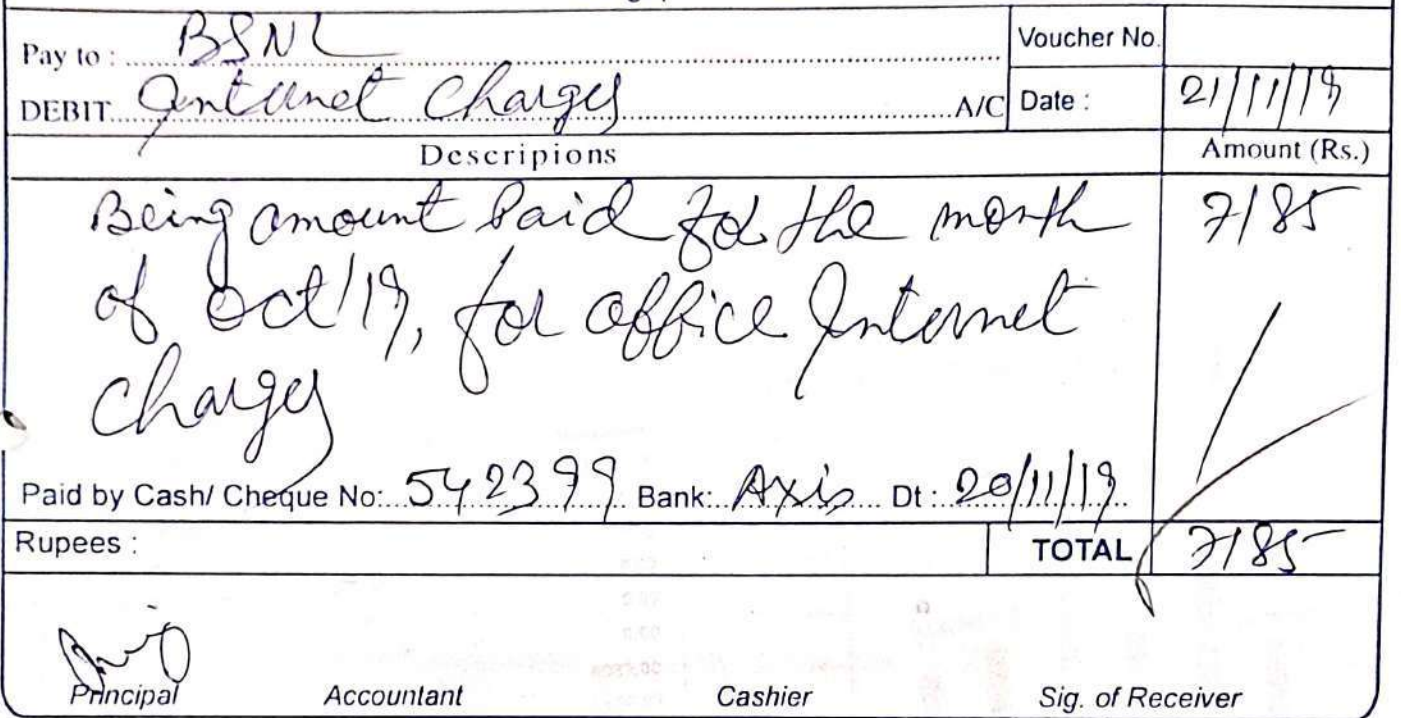 Pay to : BSNL
Voucher No.
DEBIT Internet Charges A/C
Date : 21/11/19
Descripions
Amount (Rs.)
Being amount Paid for the month 7185
of Oct/19, for office Internet
Charges
Paid by Cash/ Cheque No: 542399 Bank: Axis Dt : 20/11/19
Rupees :
TOTAL 7185
Principal Accountant Cashier Sig. of Receiver